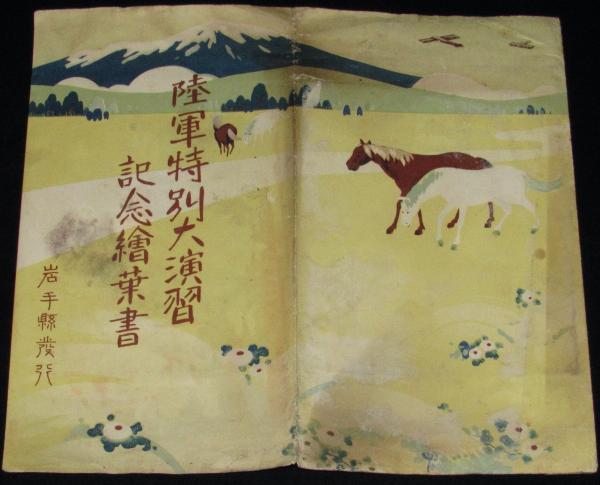 陸軍特別大演習
記念繪葉書
岩手縣發行